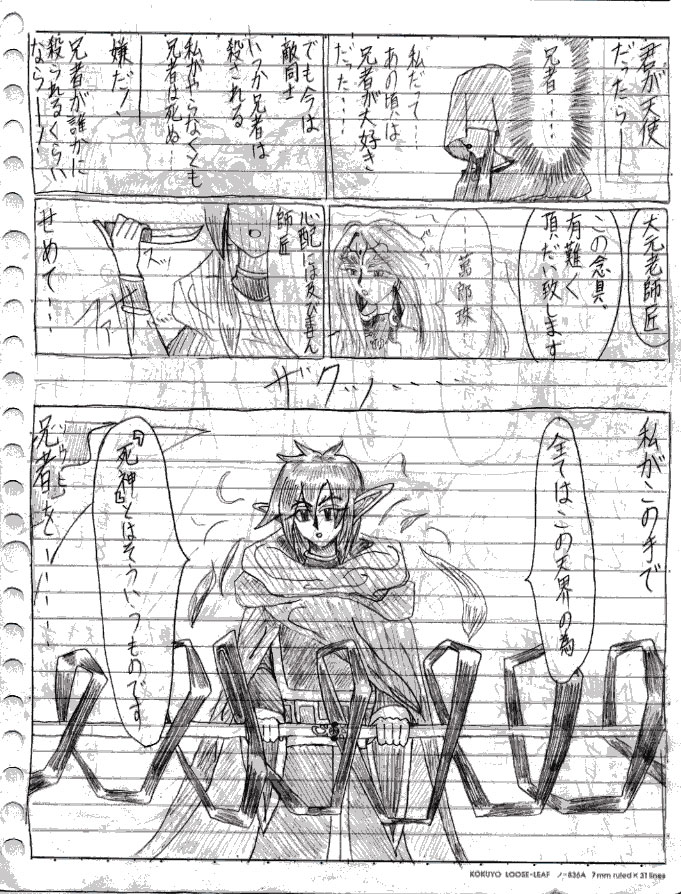 君が天使
だったら——
兄者・・・
私だって・・・
あの頃は
兄者が大好き
だった・・・
でも今は
敵同士
いつか兄者は
殺される
私がやらなくとも
兄者は死ぬ・・・
嫌だ！、
兄者が誰かに
殺られるくらい
なら——！・・
大元老師匠
この念具、
有難く
頂だい致します
・・・萬郎珠
心配には及びません
師匠
ズッ
ファサ
せめて・・・
ザクッ・・・・
私がこの手で
全てはこの天界の為
『死神』とはそういうものです
兄者を——・・・・
KOKUYO LOOSE-LEAF ノ-836A 7mm ruled × 31 lines